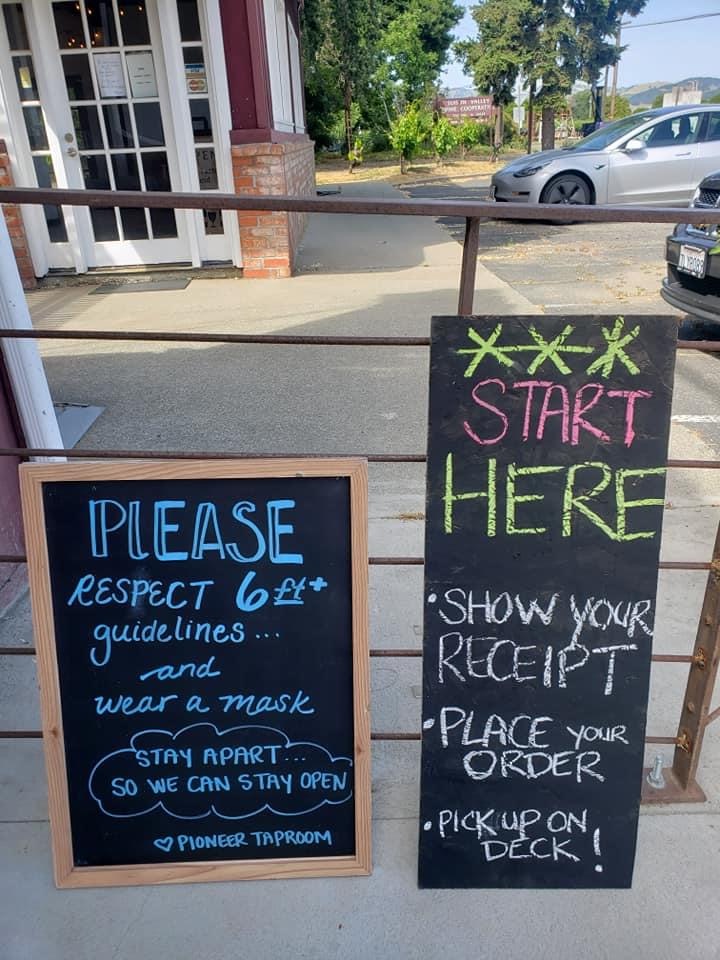 PLEASE
RESPECT 6 ft+
guidelines...
and
wear a mask
STAY APART...
SO WE CAN STAY OPEN
♡ PIONEER TAPROOM
START
HERE
• SHOW YOUR
RECEIPT
• PLACE YOUR
ORDER
• PICK UP ON
DECK!
VALLEY